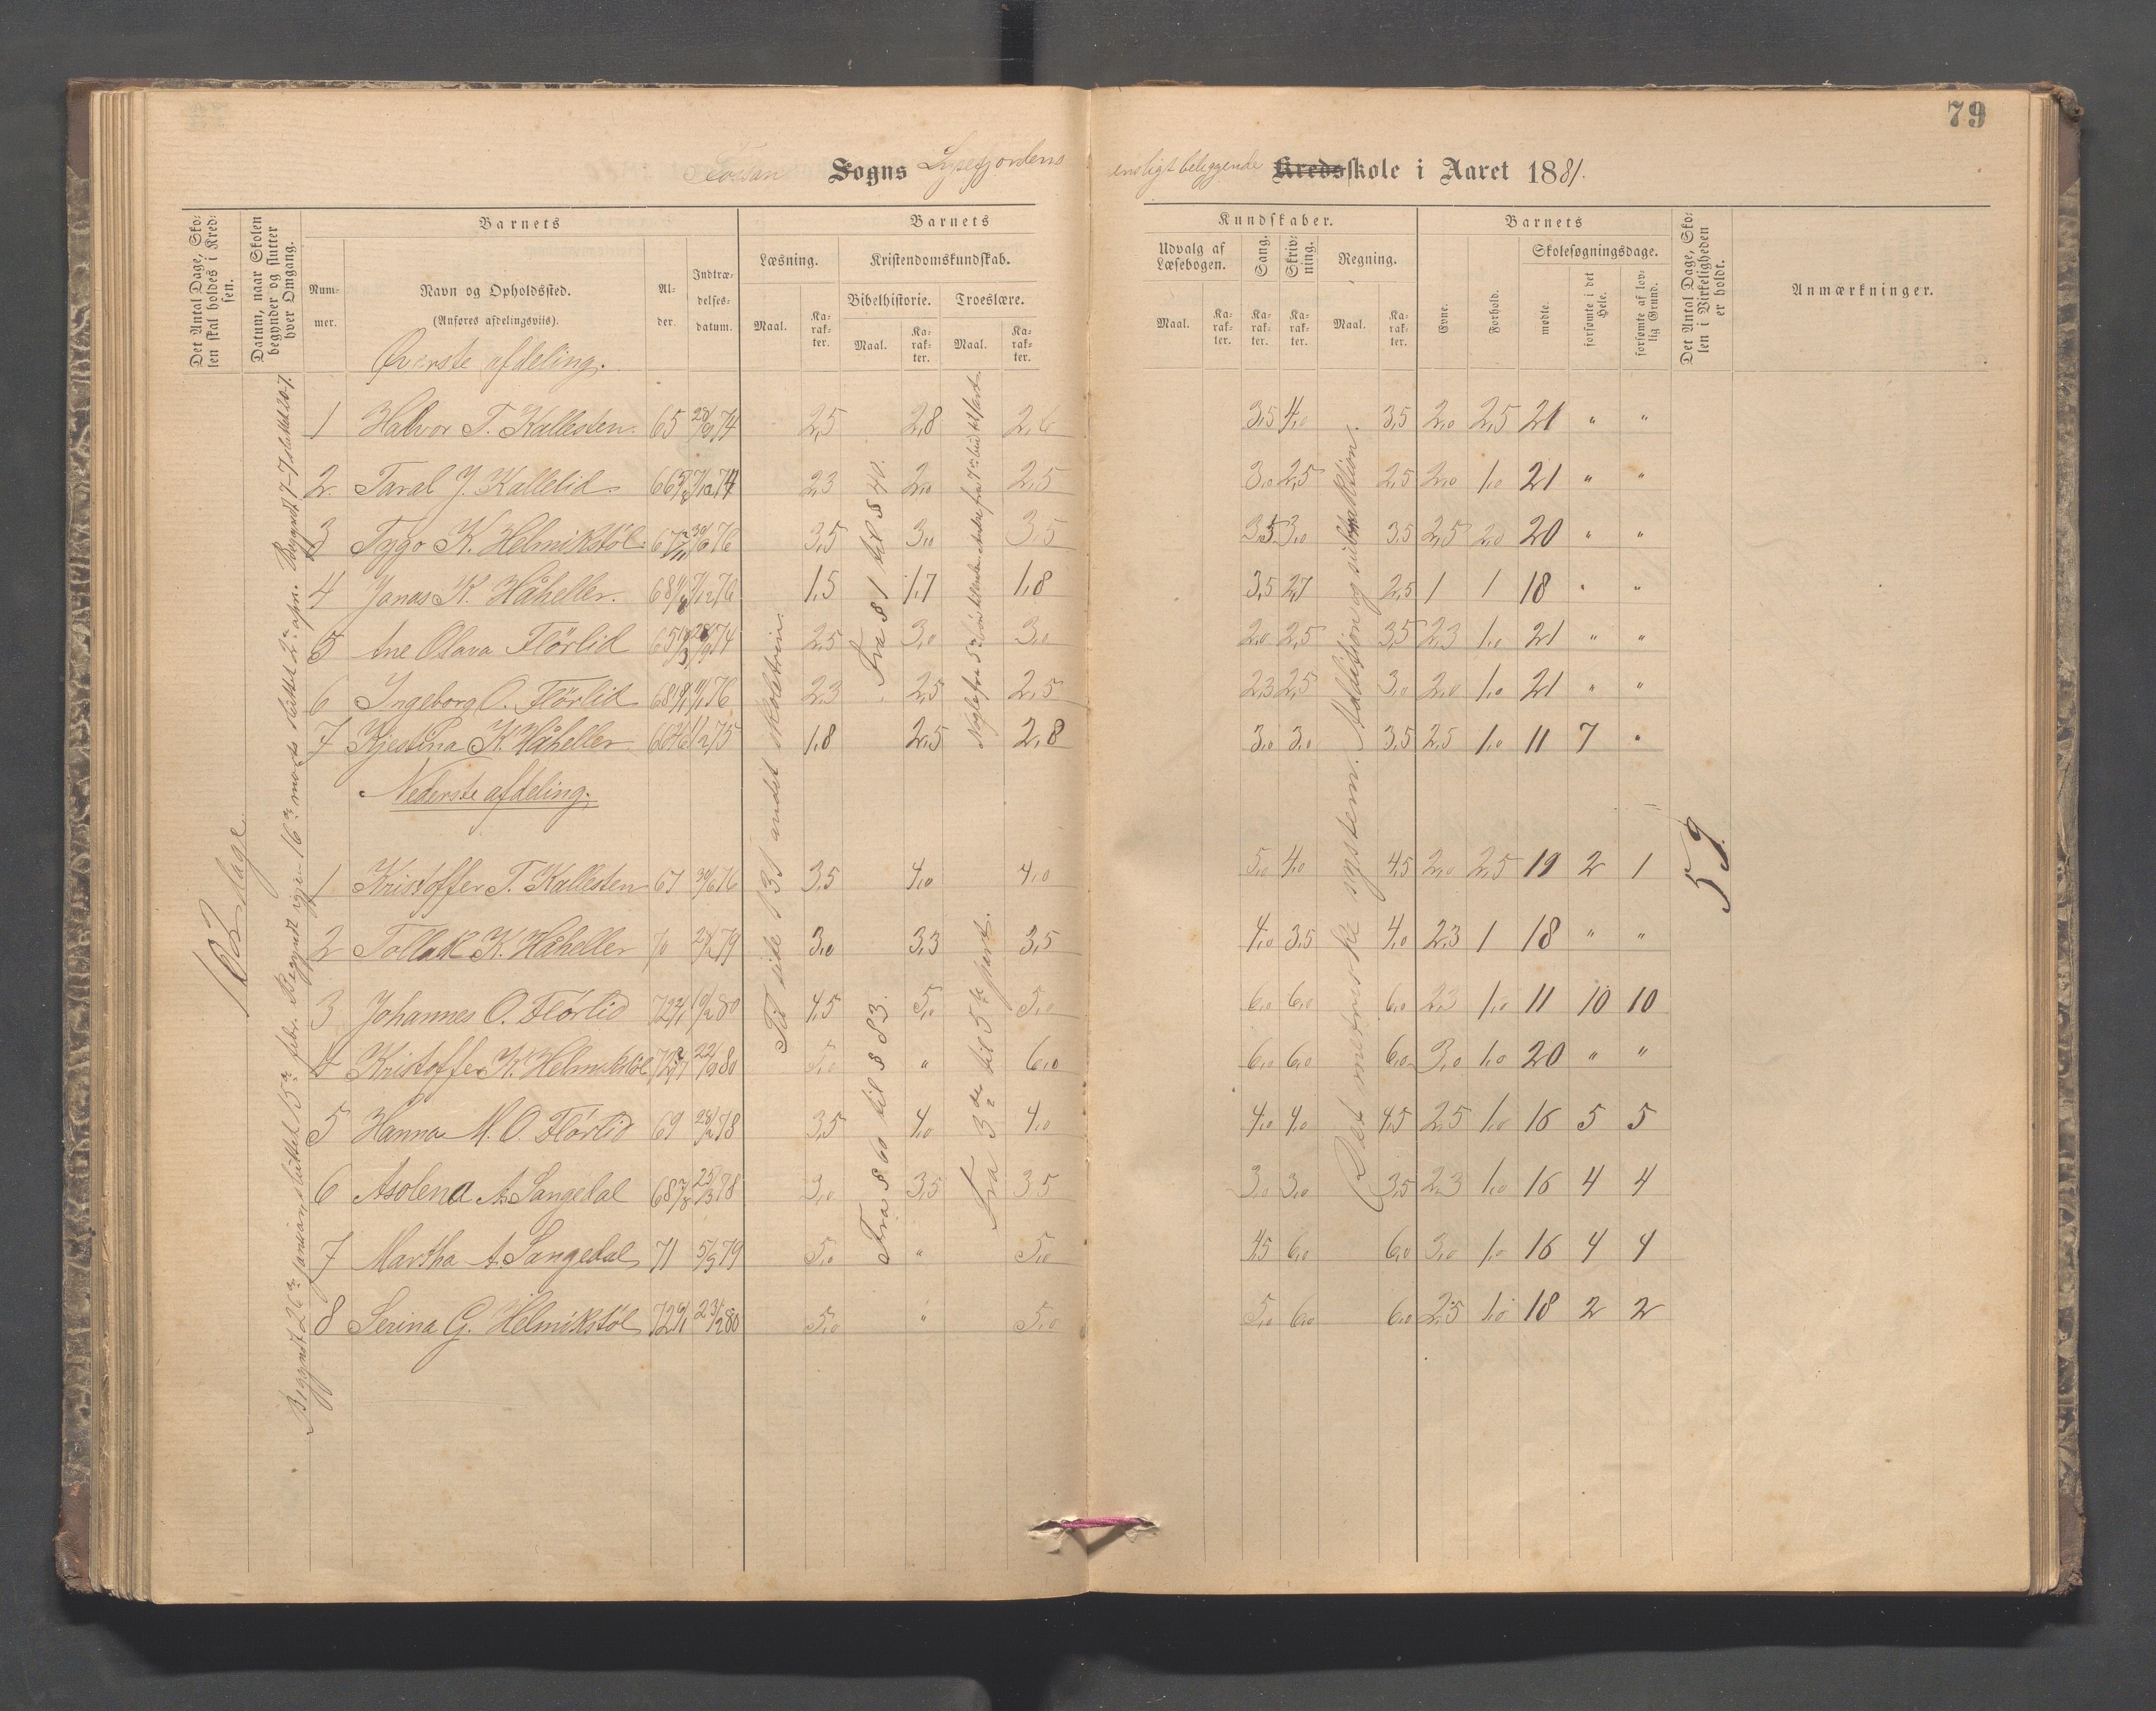 79
Fossan Sogns Lysefjordens ensligt beliggende Kredsskole i Aaret 1881.
Det Antal Dage, Skolen skal holdes i Kredsen.
Datum, naar Skolen begynder og slutter hver Omgang.
Barnets
Nummer.
Navn og Opholdssted.
(Anføres afdelingsviis).
Alder.
Indtrædelsesdatum.
Barnets
Læsning.
Maal.
Karakter.
Kristendomskundskab.
Bibelhistorie.
Maal.
Karakter.
Troeslære.
Maal.
Karakter.
Kundskaber.
Udvalg af Læsebogen.
Maal.
Karakter.
Sang.
Karakter.
Skrivning.
Karakter.
Regning.
Maal.
Karakter.
Barnets
Evne.
Forhold.
Skolesøgningsdage.
mødte.
forsømte i det Hele.
forsømte af lovlig Grund.
Det Antal Dage, Skolen i Virkeligheden er holdt.
Anmærkninger.
Øverste afdeling.
1 Halvor T. Kallesten 65 28/9 74 2,5 2,8 2,6 3,5 4,0 3,5 2,0 2,5 21 " "
2 Taral J. Kallelid 66 7/12 74 2,3 2,0 2,5 3,0 2,5 2,5 2,0 1,0 21 " "
3 Tygo K. Helmikstøl 67 30/6 76 3,5 3,0 3,5 3,5 3,0 3,5 2,5 2,0 20 " "
4 Jonas K. Håheller. 68 7/12 76 1,5 1,7 1,8 3,5 2,7 2,5 1 1 18 " "
5 Ane Olava Flörlid 65 28/9 74 2,5 3,0 3,0 2,0 2,5 3,5 2,3 1,0 21 " "
6 Ingeborg O. Flörlid 68 76 2,3 2,5 2,5 2,3 2,5 3,0 2,0 1,0 21 " "
7 Kjestina K. Håheller 75 1,8 2,5 2,8 3,0 3,0 3,5 2,5 1,0 11 7 "
Nederste afdeling.
1 Kristoffer T. Kallesten 67 30/6 76 3,5 4,0 4,0 5,0 4,0 4,5 2,0 2,5 19 2 1
2 Tollak K. Håheller 70 79 3,0 3,3 3,5 4,0 3,5 4,0 2,3 1 18 " "
3 Johannes O. Flörlid 72 80 4,5 5,0 5,0 6,0 6,0 6,0 2,3 1,0 11 10 10
4 Kristoffer K. Helmikstöl 72 80 5,0 " 6,0 6,0 6,0 6,0 3,0 1,0 20 " "
5 Hanna M. O. Flörlid 69 28/2 78 3,5 4,0 4,0 4,0 4,0 4,5 2,5 1,0 16 5 5
6 Asolena A. Sangedal 68 25/3 78 3,0 3,5 3,5 3,0 3,0 3,5 2,3 1,0 16 4 4
7 Martha A. Sangedal 71 5/3 79 5,0 " 5,0 4,5 6,0 6,0 3,0 1,0 16 4 4
8 Serina G. Helmikstöl 72 23/2 80 5,0 " 5,0 5,0 6,0 6,0 2,5 1,0 18 2 2
102 dage.
Begyndt 26de januar, sluttet 15de febr. Begyndt igjen 16de marts sluttet 2den apr. Begyndt 7-7 sluttet 20-7.
Til side 131 andet skoletrin.
Fra § 1 til § 40.
Fra § 60 til § 83.
Fra 3de til 5te part.
Det metriske system. Addition og subtraktion.
59